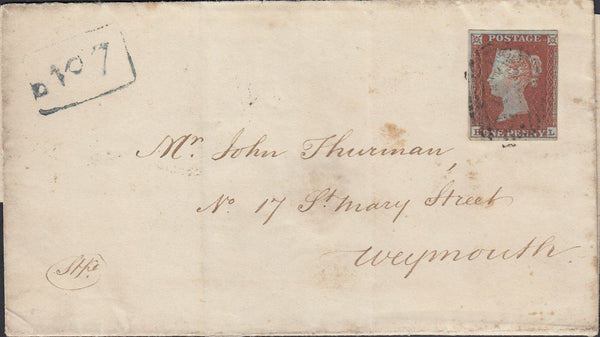 POSTAGE
ONE PENNY L
Mr. John Thurman,
No 17 St Mary Street
Weymouth.
Stpd